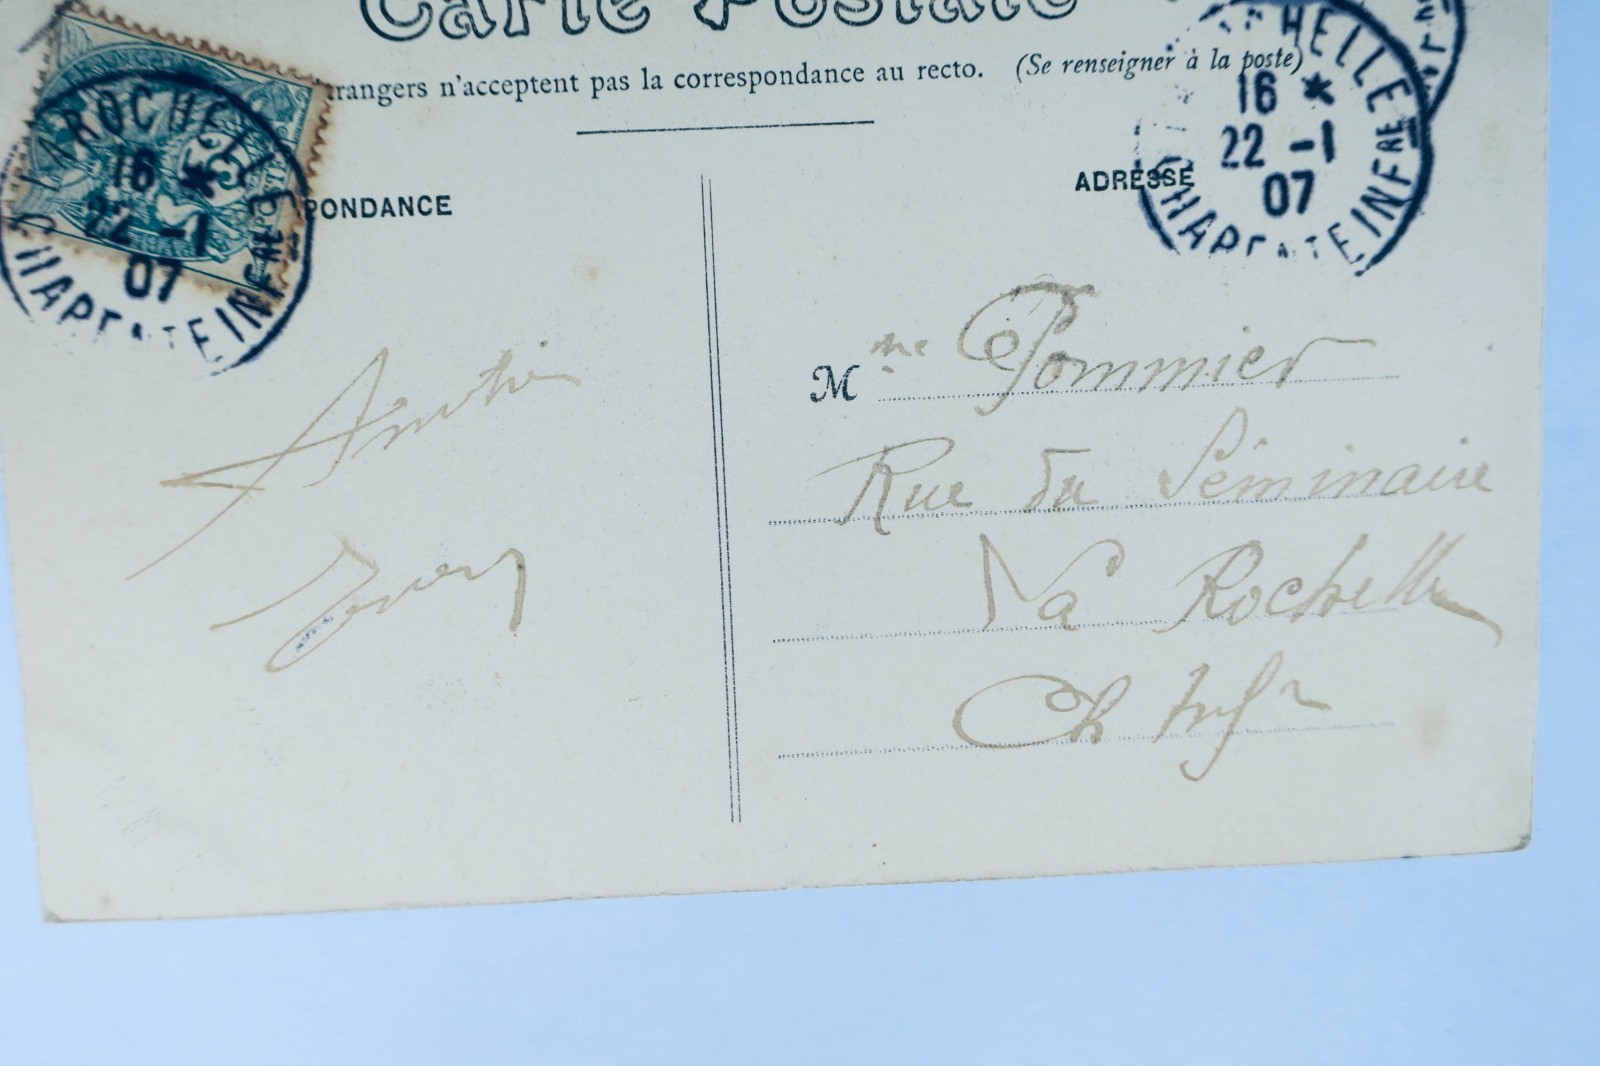 Carte Postale
trangers n'acceptent pas la correspondance au recto. (Se renseigner à la poste)
LA ROCHELLE
16 *
22 -1
07
CHARENTE INFRE
PONDANCE
HELLE
16 *
22 -1
07
CHARENTE INFRE
ADRESSE
Mme Pommier
Rue du Séminaire
La Rochelle
Ch Infre